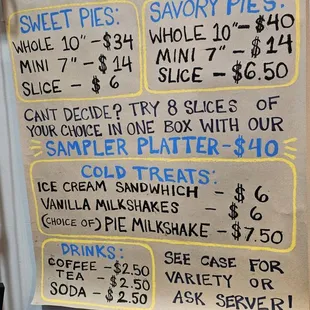 SWEET PIES:
WHOLE 10" - $34
MINI 7" - $14
SLICE - $6
SAVORY PIES:
WHOLE 10" - $40
MINI 7" - $14
SLICE - $6.50
CANT DECIDE? TRY 8 SLICES OF
YOUR CHOICE IN ONE BOX WITH OUR
SAMPLER PLATTER - $40
COLD TREATS:
ICE CREAM SANDWHICH - $6
VANILLA MILKSHAKES - $6
(CHOICE OF) PIE MILKSHAKE - $7.50
DRINKS:
COFFEE - $2.50
TEA - $2.50
SODA - $2.50
SEE CASE FOR
VARIETY OR
ASK SERVER!